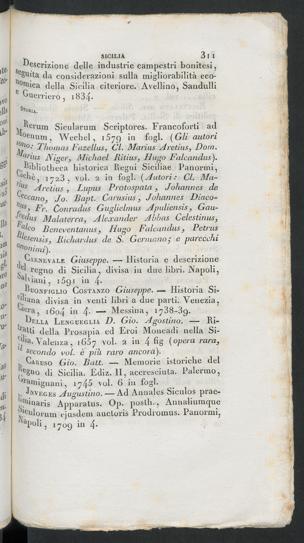 SICILIA 311
Descrizione delle industrie campestri bonitesi,
seguita da considerazioni sulla migliorabilità eco-
nomica della Sicilia citeriore. Avellino, Sandulli
e Guerriero, 1834.
STORIA.
Rerum Sicularum Scriptores. Francoforti ad
Moenum, Wechel, 1579 in fogl. (Gli autori
sono: Thomas Fazellus, Cl. Marius Aretius, Dom.
Marius Niger, Michael Ritius, Hugo Falcandus).
Bibliotheca historica Regni Siciliae Panormi,
Cichè, 1723, vol. 2 in fogl. (Autori: Cl. Ma-
rius Aretius, Lupus Protospata, Johannes de
Ceccano, Jo. Bapt. Carusius, Johannes Diaco-
nus, Fr. Conradus Guglielmus Apuliensis, Gau-
fredus Malaterra, Alexander Abbas Celestinus,
Falco Beneventanus, Hugo Falcandus, Petrus
Blesensis, Richardus de S. Germano; e parecchi
anonimi).
CARNEVALE Giuseppe. — Historia e descrizione
del regno di Sicilia, divisa in due libri. Napoli,
Salviani, 1591 in 4.
BUONFIGLIO COSTANZO Giuseppe. — Historia Si-
ciliana divisa in venti libri a due parti. Venezia,
Ciera, 1604 in 4. — Messina, 1738-39.
DELLA LENGUEGLIA D. Gio. Agostino. — Ri-
tratti della Prosapia ed Eroi Moncadi nella Si-
cilia. Valenza, 1657 vol. 2 in 4 fig (opera rara,
il secondo vol. è più raro ancora).
CARUSO Gio. Batt. — Memorie istoriche del
Regno di Sicilia. Ediz. II, accresciuta. Palermo,
Gramignani, 1745 vol. 6 in fogl.
INVEGES Augustino. — Ad Annales Siculos prae-
liminaris Apparatus. Op. posth., Annaliumque
Siculorum ejusdem auctoris Prodromus. Panormi,
Napoli, 1709 in 4.